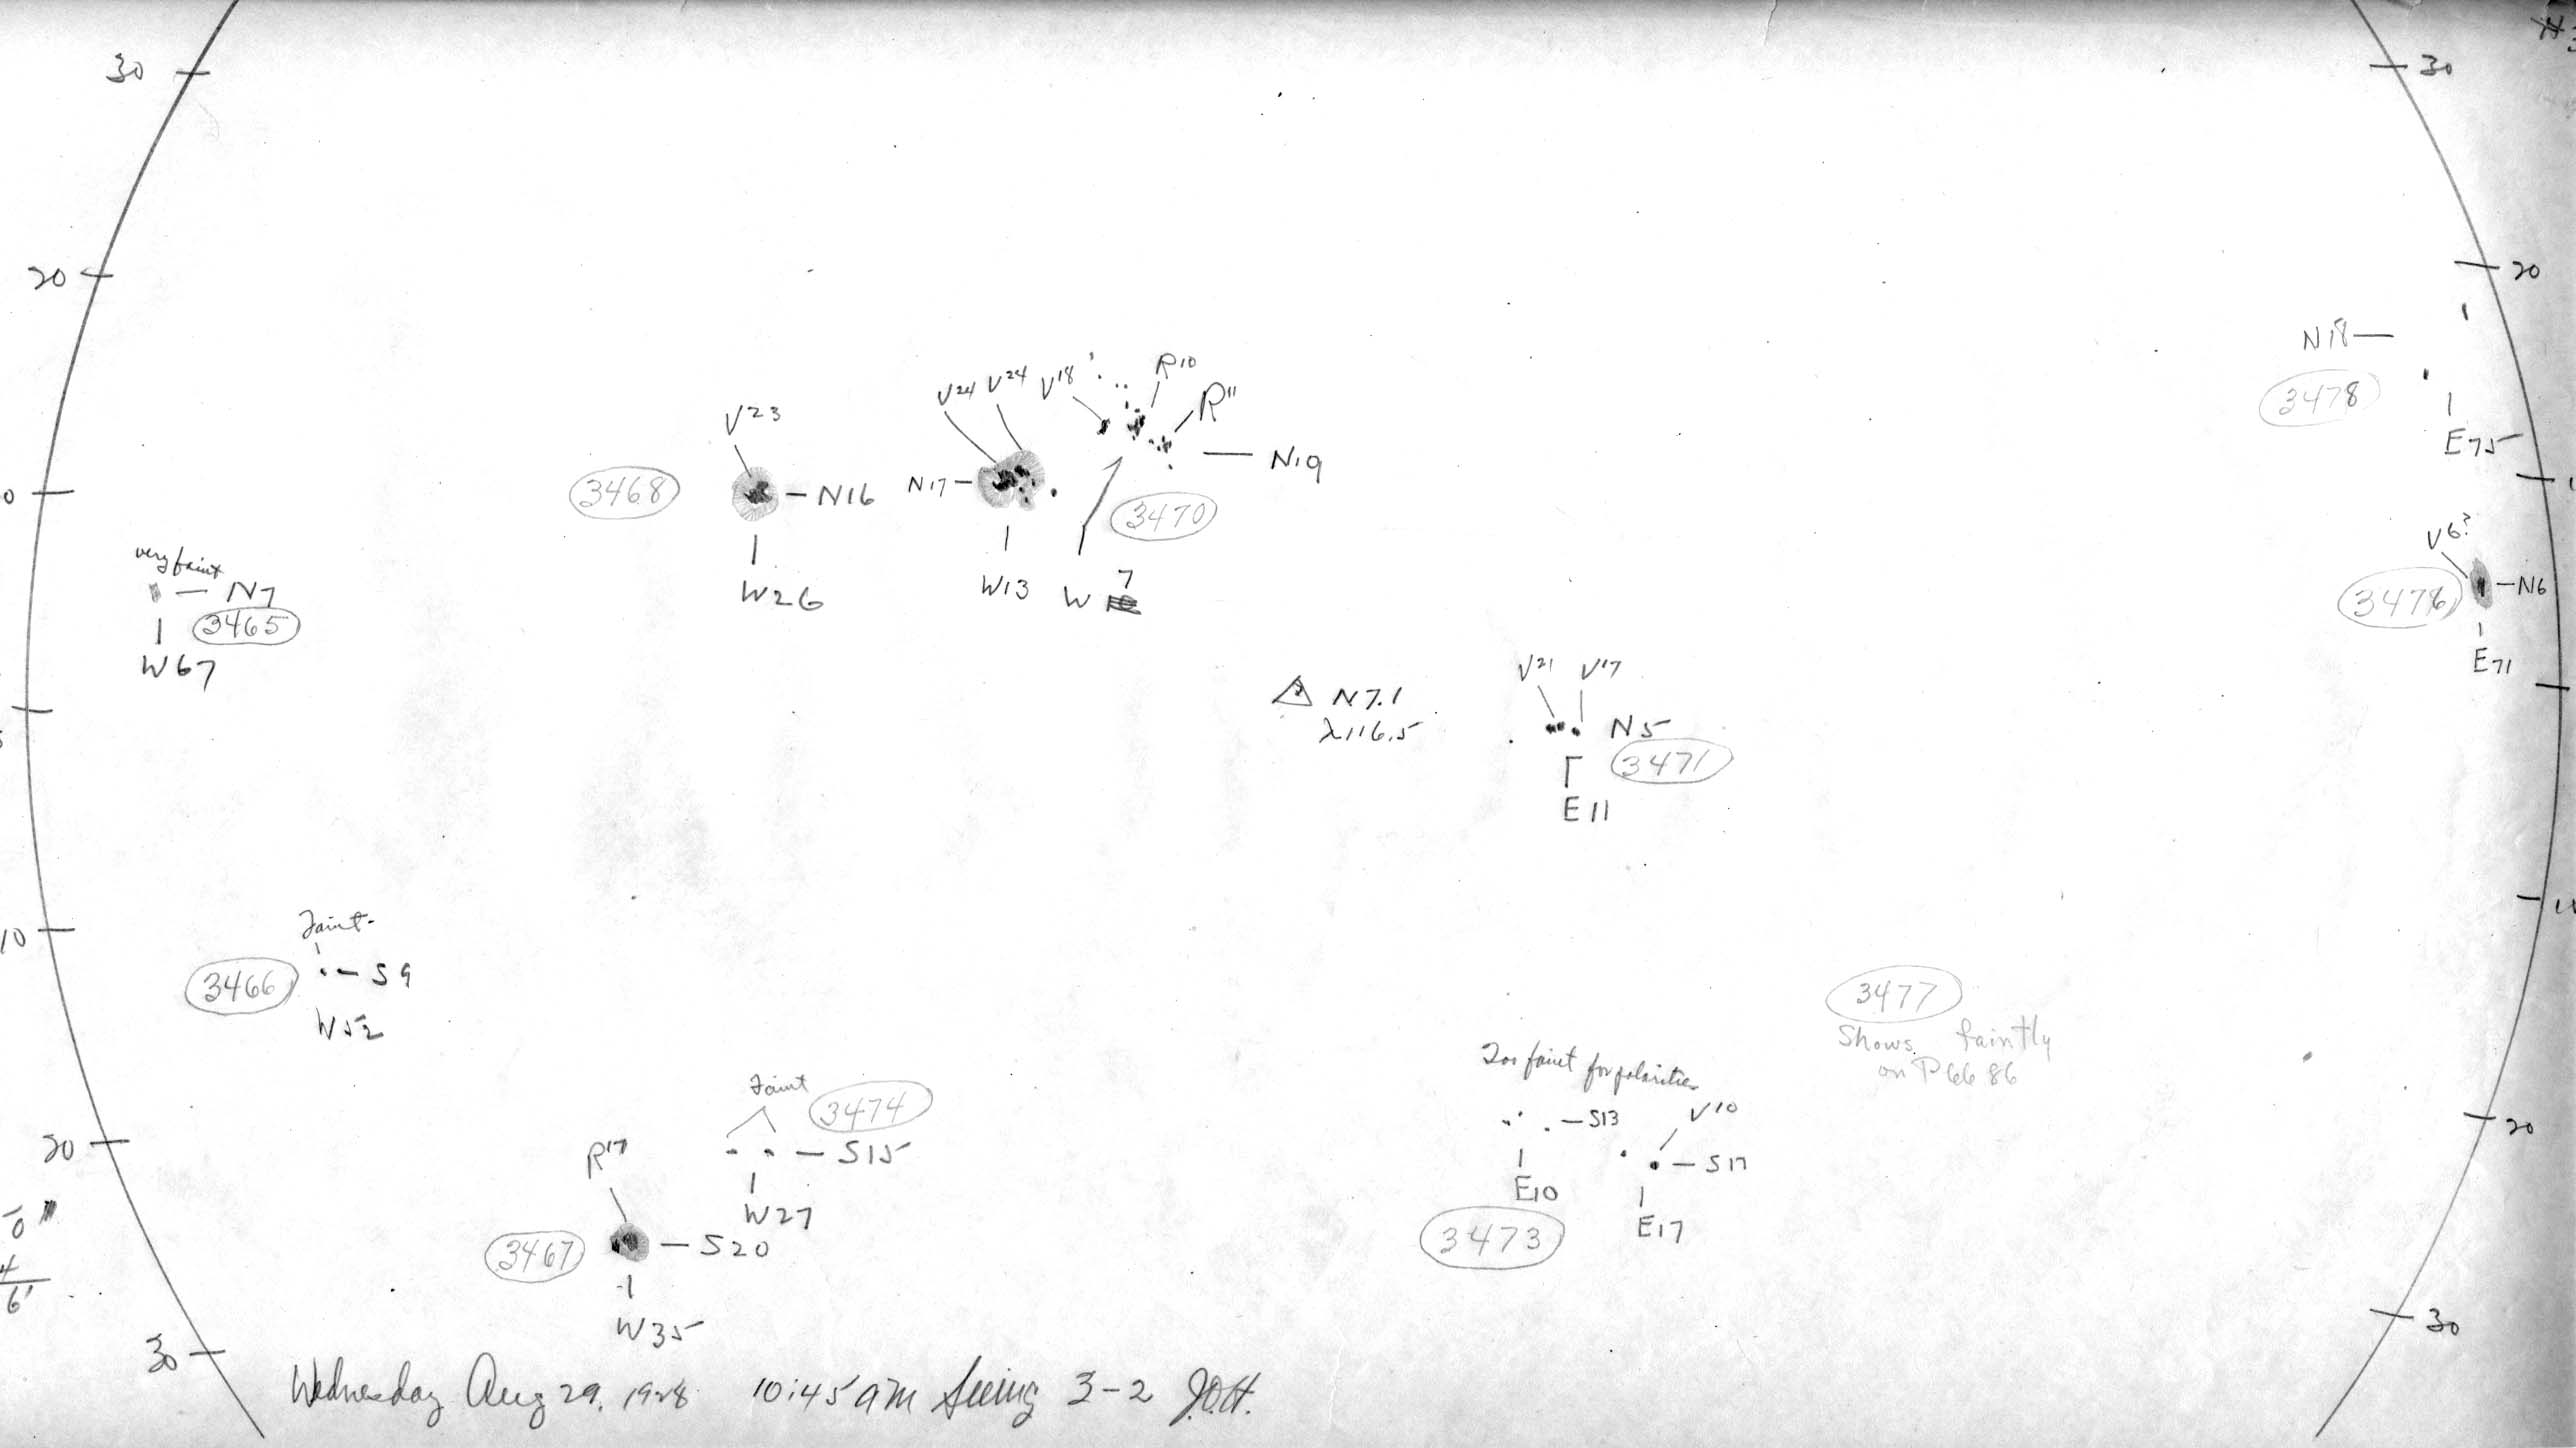 30
30
20
20
N18
3478
E75
V23
V24 V24 V18
R10
R11
3468
N16
N17
N19
3470
W26
W13
W 7
0
very faint
N7
3465
W67
V6?
3476
N6
E71
N7.1
λ116.5
V21 V17
N5
3471
E11
10
Faint
3466
S9
W52
3477
Shows faintly
on P6686
Too faint for polarities
S13
V10
S17
E10
E17
3473
Faint
3474
S15
W27
20
20
R17
3467
S20
W35
30
30
Wednesday Aug 29, 1928 10:45 am Seeing 3-2 J.O.H.